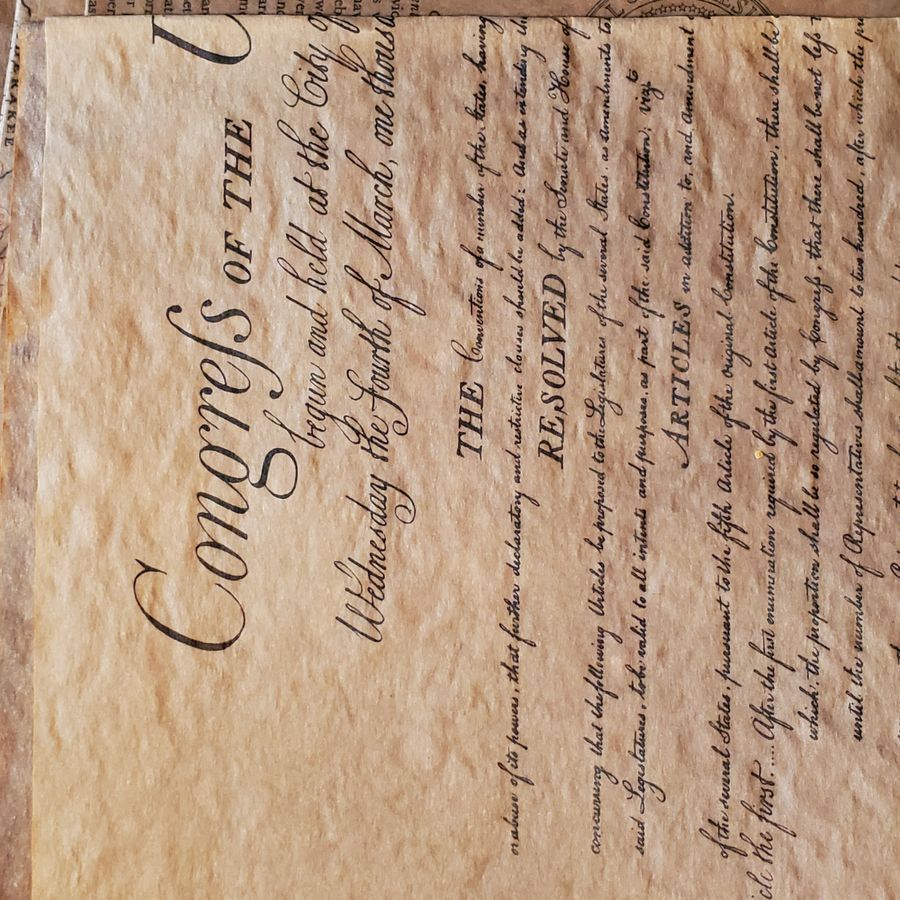 Congress OF THE
begun and held at the City
Wednesday the Fourth of March, one thous
THE Conventions of a number of the States, having
or abuse of its powers, that further declaratory and restrictive clauses should be added: And as extending the
RESOLVED by the Senate and House of
concurring that the following Articles be proposed to the Legislatures of the several States, as Amendments to
said Legislatures, to be valid to all intents and purposes, as part of the said Constitution; viz.
ARTICLES in addition to, and Amendment
of the several States, pursuant to the fifth Article of the original Constitution.
icle the first..... After the first enumeration required by the first Article of the Constitution, there shall be
which, the proportion shall be so regulated by Congress, that there shall be not less
until the number of Representatives shall amount to two hundred, after which the pr
KANKAKEE